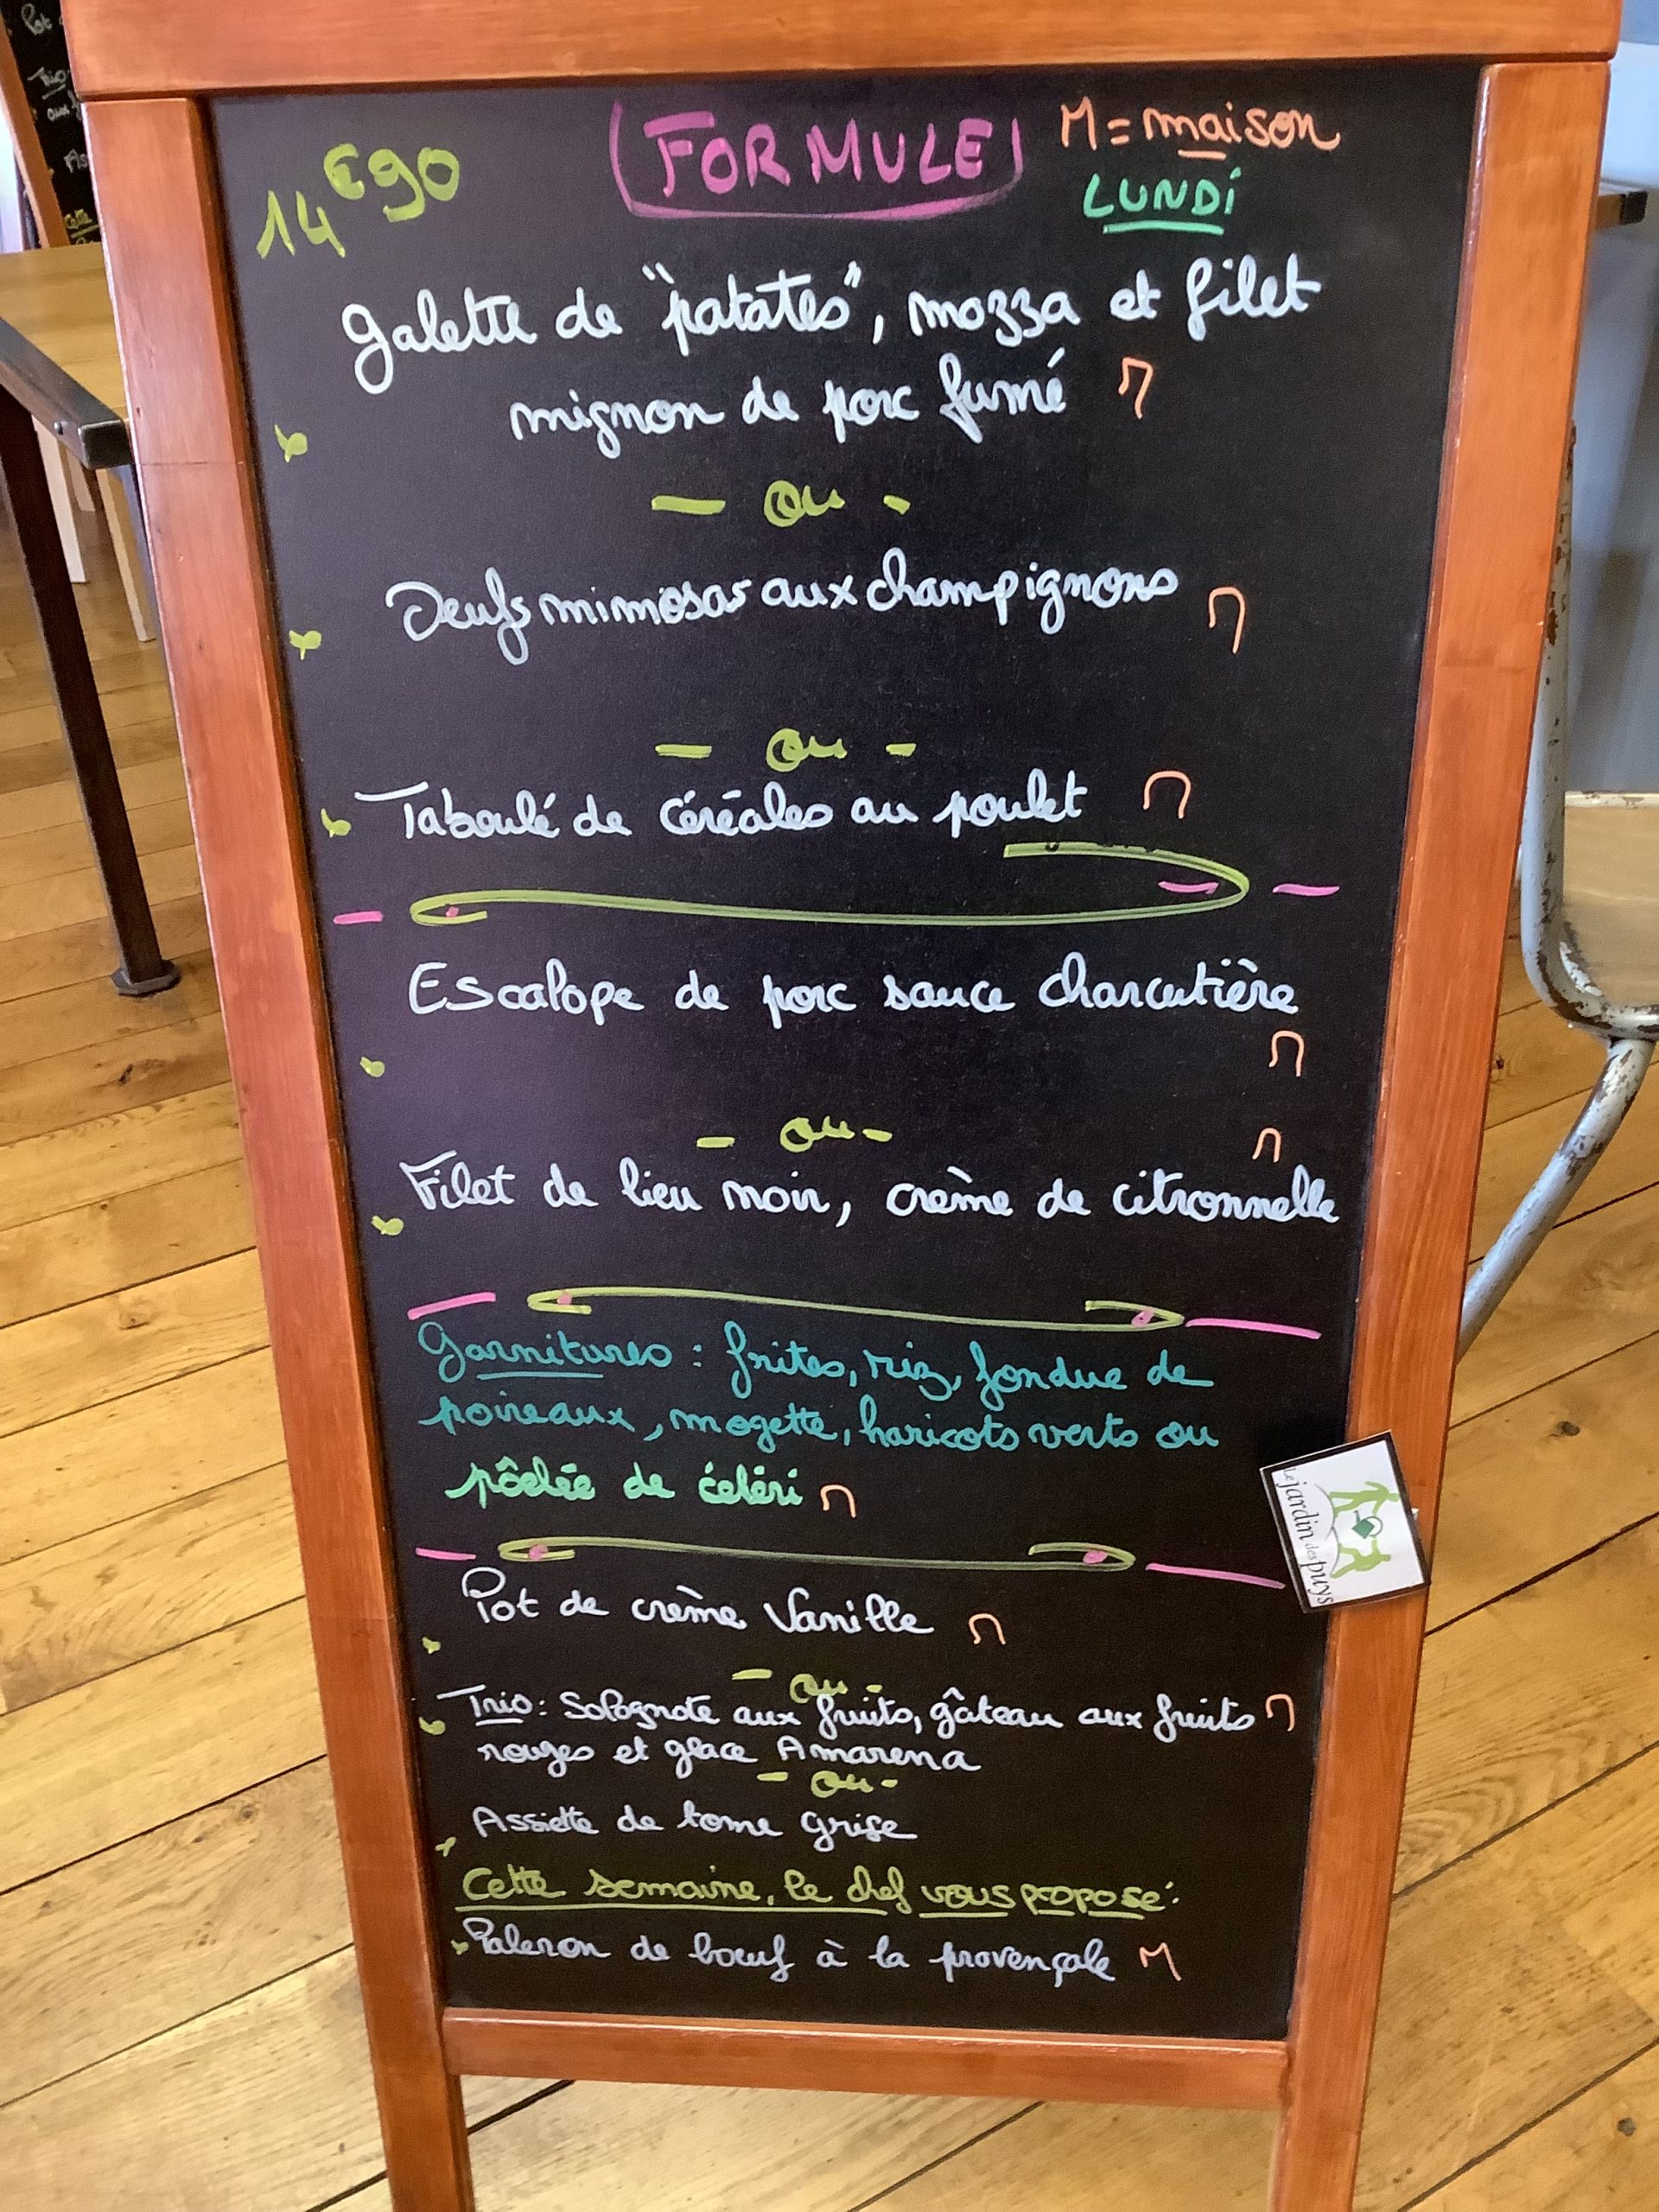 14€90
FORMULE
M = maison
LUNDI
Galette de "patates", mozza et filet
mignon de porc fumé M
- ou -
Oeufs mimosas aux champignons M
- ou -
Taboulé de céréales au poulet M
Escalope de porc sauce charcutière
M
- ou - M
Filet de lieu noir, crème de citronnelle
Garnitures : frites, riz, fondue de
poireaux, mogette, haricots verts ou
pôelée de céléri M
Pot de crème Vanille M
- ou -
Trio : Solognote aux fruits, gâteau aux fruits M
rouges et glace Amarena
- ou -
Assiette de tome grise
Cette semaine, le chef vous propose :
Paleron de boeuf à la provençale M
Le jardin des puys
Pot
Trio